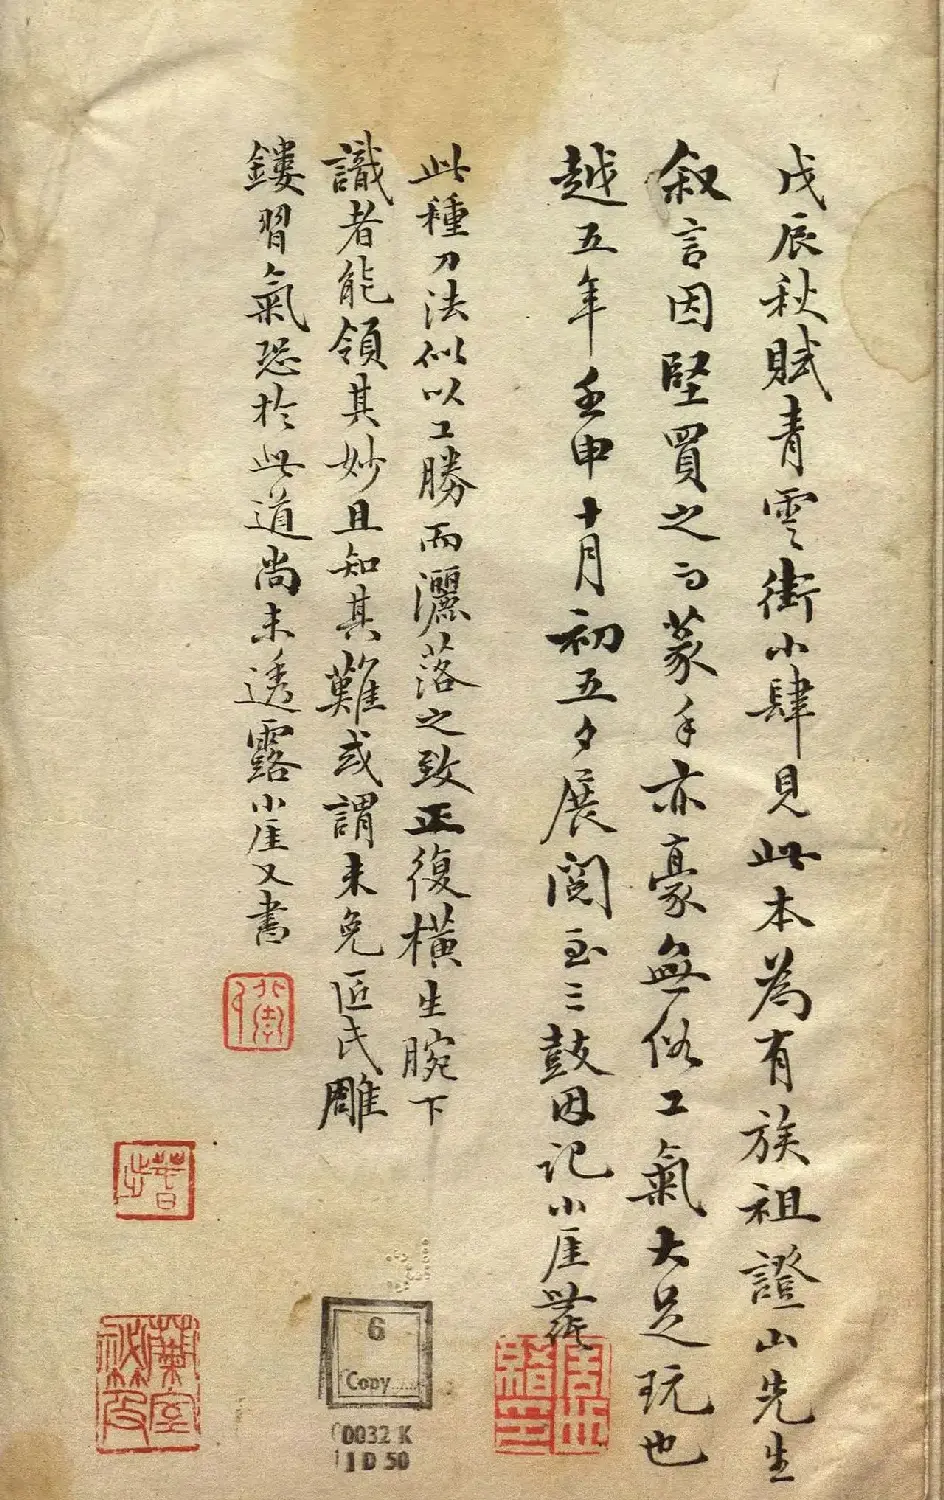 戊辰秋賦青雲街小肆見此本為有族祖證山先生
叙言因堅買之而篆手亦豪無俗工氣大足玩也
越五年壬申十月初五夕展閱至三鼓因記小厓
此種刀法似以工勝而灑落之致正復橫生腕下
識者能領其妙且知其難或謂未免匠氏雕
鏤習氣恐於此道尚未透露小厓又書
蘭室
6
Copy
0032 K
1 D 50